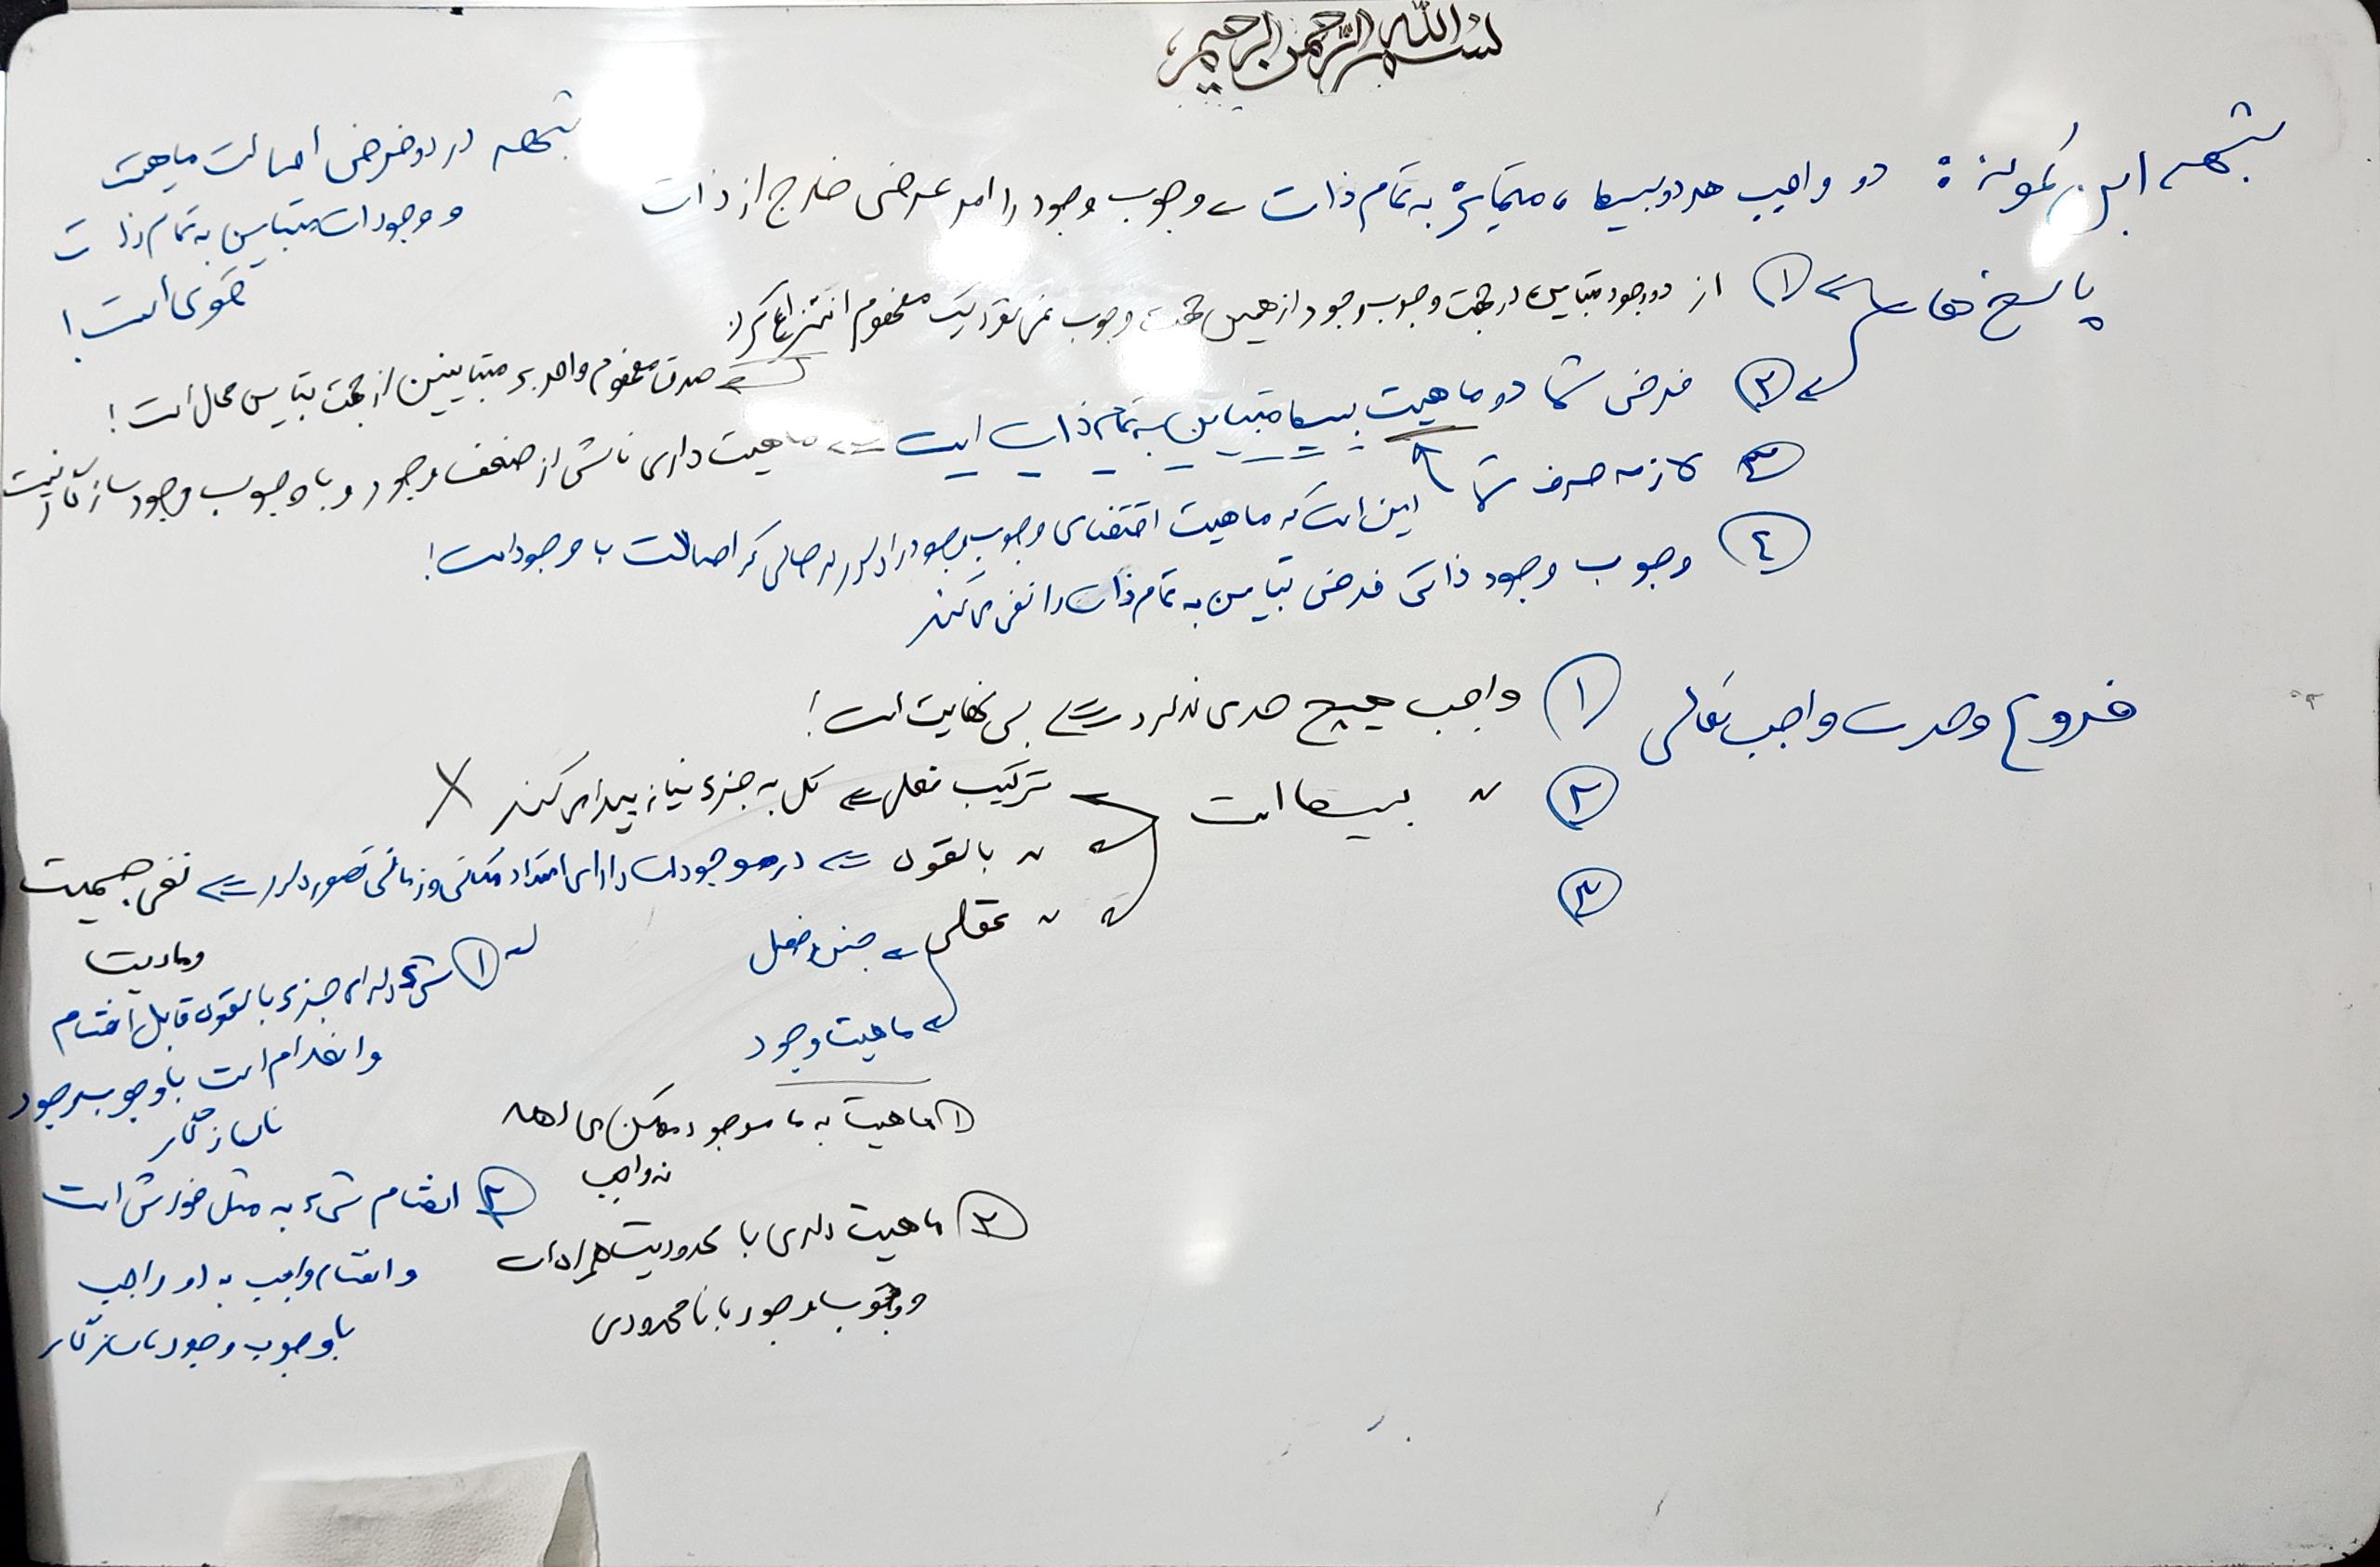 بسم الله الرحمن الرحیم
شبهه ابن کمونه: دو واجب هر دو بسیط، متمایز به تمام ذات ← وجوب وجود را امر عرضی خارج از ذات
شبهه در دو فرض اصالت ماهیت
و وجودات متباین به تمام ذات
قوی است!
پاسخ ها ← ① از دو وجود متباین در جهت وجوب وجود از همین جهت وجوب نمی توان یک مفهوم انتزاع کرد
⇐ صدق مفهوم واحد بر متباینین از جهت تباین محال است!
② فرض شما دو ماهیت بسیط متباین به تمام ذات است ⇐ ماهیت داری ناشی از ضعف وجود و با وجوب وجود سازگار نیست
③ لازمه حرف شما این است که ماهیت اقتضای وجوب وجود را دارد در حالی که اصالت با وجود است!
④ وجوب وجود ذاتی فرض تباین به تمام ذات را نفی می کند
فروع وحدت واجب تعالی ① واجب هیچ حدی ندارد ⇐ بی نهایت است!
② " بسیط است ← ترکیب فعلی ⇐ کل به جزء نیاز پیدا می کند ✗
← " بالقوه ⇐ در موجودات دارای امتداد مکانی و زمانی تصور دارد ⇐ نفی جسمیت
و مادیت
← " عقلی ← جنس و فصل
← ماهیت وجود
③
① ماهیت به ما موجود ممکن می دهد
نه واجب
② ماهیت داری با محدودیت همراه است
و وجوب وجود با نامحدودی
① شیء دارای جزء بالقوه قابل انقسام
و انعدام است با وجوب وجود
ناسازگار
② انقسام شیء به مثل خودش است
و انقسام واجب به دو واجب
با وجوب وجود ناسازگار